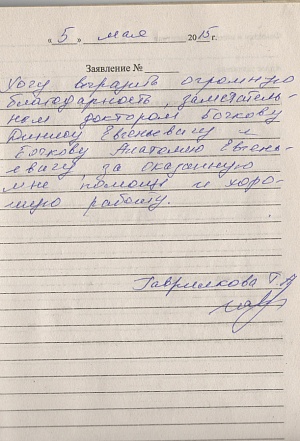 « 5 » мая 2015 г.
Заявление №
Хочу выразить огромную
благодарность, замечатель-
ным докторам Бочкову
Денису Евгеньевичу и
Бочкову Анатолию Евгень-
евичу, за оказанную
мне помощь и хоро-
шую работу.
Гаврилкова Т.А